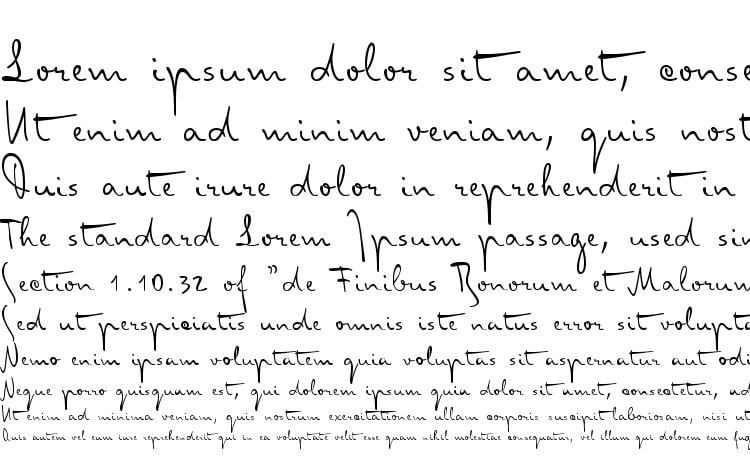 Lorem ipsum dolor sit amet, conse
Ut enim ad minim veniam, quis nost
Duis aute irure dolor in reprehenderit in
The standard Lorem Ipsum passage, used sin
Section 1.10.32 of "de Finibus Bonorum et Malorum
Sed ut perspiciatis unde omnis iste natus error sit volupta
Nemo enim ipsam voluptatem quia voluptas sit aspernatur aut odi
Neque porro quisquam est, qui dolorem ipsum quia dolor sit amet, consectetur, ad
Ut enim ad minima veniam, quis nostrum exercitationem ullam corporis suscipit laboriosam, nisi ut
Quis autem vel eum iure reprehenderit qui in ea voluptate velit esse quam nihil molestiae consequatur, vel illum qui dolorem eum fug